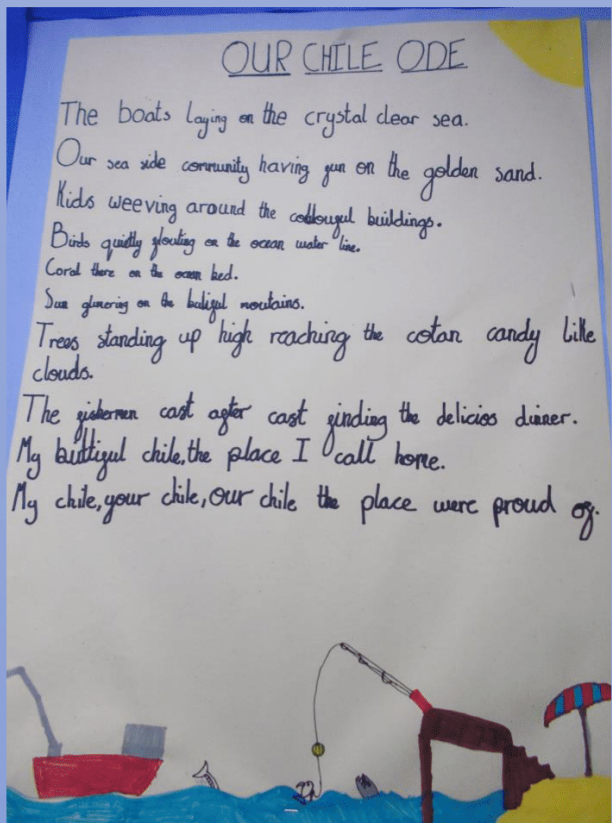 OUR CHILE ODE
The boats laying on the crystal clear sea.
Our sea side community having fun on the golden sand.
Kids weeving around the collouful buildings.
Birds quietly floating on the ocean water line.
Coral there on the ocean bed.
Sun glimering on the butiful moutains.
Trees standing up high reaching the cotan candy like
clouds.
The fishermen cast after cast finding the delicios dinner.
My buttiful chile, the place I call home.
My chile, your chile, our chile the place were proud of.